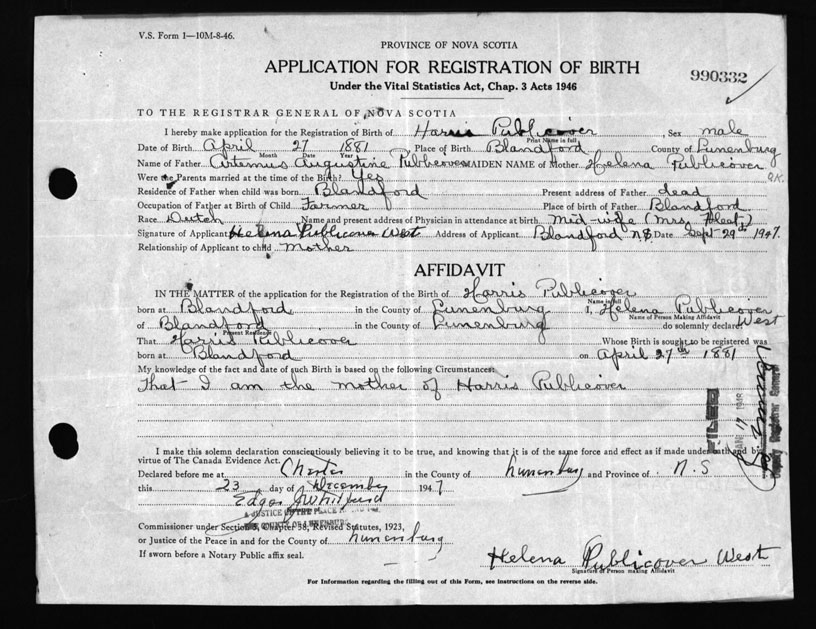 V.S. Form 1—10M-8-46.
PROVINCE OF NOVA SCOTIA
APPLICATION FOR REGISTRATION OF BIRTH
990332
Under the Vital Statistics Act, Chap. 3 Acts 1946
TO THE REGISTRAR GENERAL OF NOVA SCOTIA
I hereby make application for the Registration of Birth of Harris Publicover, Sex male
Print Name in full
Date of Birth April 27 1881 Place of Birth Blandford County of Lunenburg
Month Date Year
Name of Father Artemus Augustine Publicover MAIDEN NAME of Mother Helena Publicover
Were the Parents married at the time of the Birth? Yes
Residence of Father when child was born Blandford Present address of Father dead
Occupation of Father at Birth of Child Farmer Place of birth of Father Blandford
Race Dutch Name and present address of Physician in attendance at birth Mid-wife (Mrs.
Signature of Applicant Helena Publicover West Address of Applicant Blandford N.S. Date Sept 29th 1947.
Relationship of Applicant to child mother
AFFIDAVIT
IN THE MATTER of the application for the Registration of the Birth of Harris Publicover
Name in full
born at Blandford in the County of Lunenburg I, Helena Publicover
Name of Person Making Affidavit
of Blandford in the County of Lunenburg do solemnly declare: West
Present Residence
That Harris Publicover Whose Birth is sought to be registered was
born at Blandford on April 27th 1881
My knowledge of the fact and date of such Birth is based on the following Circumstances:
That I am the mother of Harris Publicover
FILED
Deputy Registrar General
I make this solemn declaration conscientiously believing it to be true, and knowing that it is of the same force and effect as if made under oath and by
virtue of The Canada Evidence Act.
Declared before me at Chester in the County of Lunenburg and Province of N.S
this 23 day of December 1947
A JUSTICE OF THE PEACE IN AND FOR
THE COUNTY OF LUNENBURG
Commissioner under Section 8, Chapter 38, Revised Statutes, 1923,
or Justice of the Peace in and for the County of Lunenburg
If sworn before a Notary Public affix seal.
Helena Publicover West
Signature of Person making Affidavit
For Information regarding the filling out of this Form, see instructions on the reverse side.